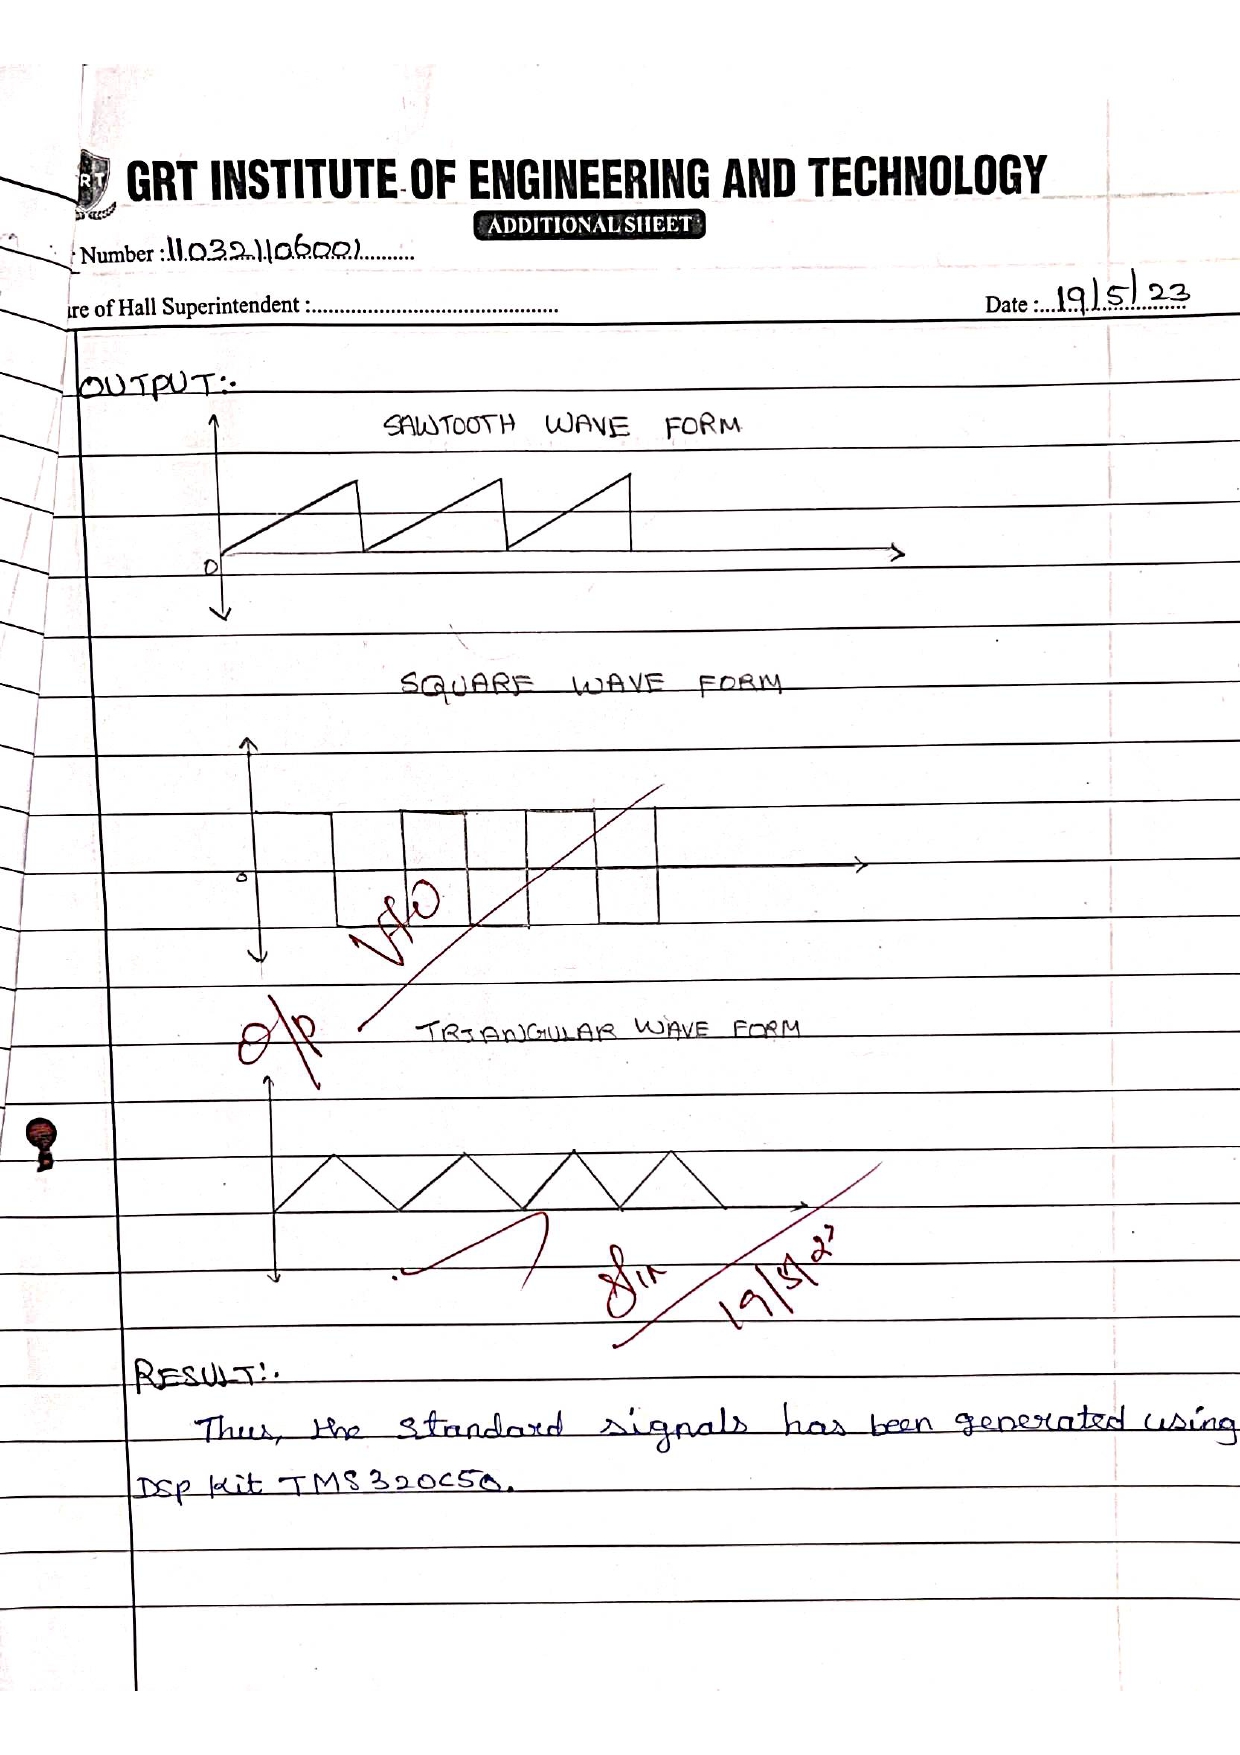 RT
GRT INSTITUTE OF ENGINEERING AND TECHNOLOGY
ADDITIONAL SHEET
Number : 110321106001
ure of Hall Superintendent :
Date : 19/5/23
OUTPUT:-
SAWTOOTH WAVE FORM
0
SQUARE WAVE FORM
0
O/P
TRIANGULAR WAVE FORM
19/5/23
RESULT:-
Thus, the standard signals has been generated using
DSP Kit TMS320C50.